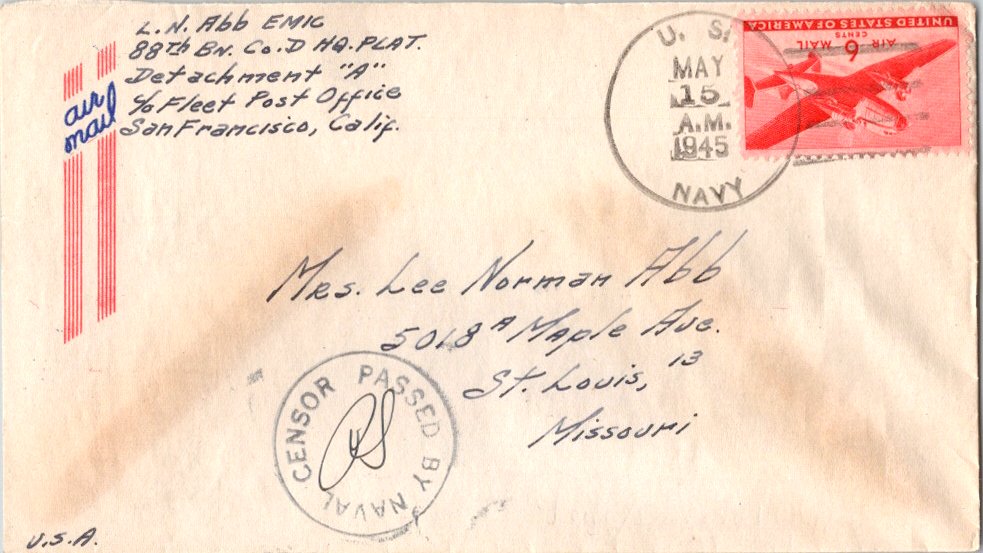 L. N. Abb EM1C
88th Bn. Co. D HQ. PLAT.
Detachment "A"
c/o Fleet Post Office
San Francisco, Calif.
air
mail
U. S.
MAY
15
A.M.
1945
NAVY
UNITED STATES OF AMERICA
6
CENTS
AIR MAIL
Mrs. Lee Norman Abb
5018A Maple Ave.
St. Louis, 13
Missouri
PASSED BY NAVAL CENSOR
U.S.A.